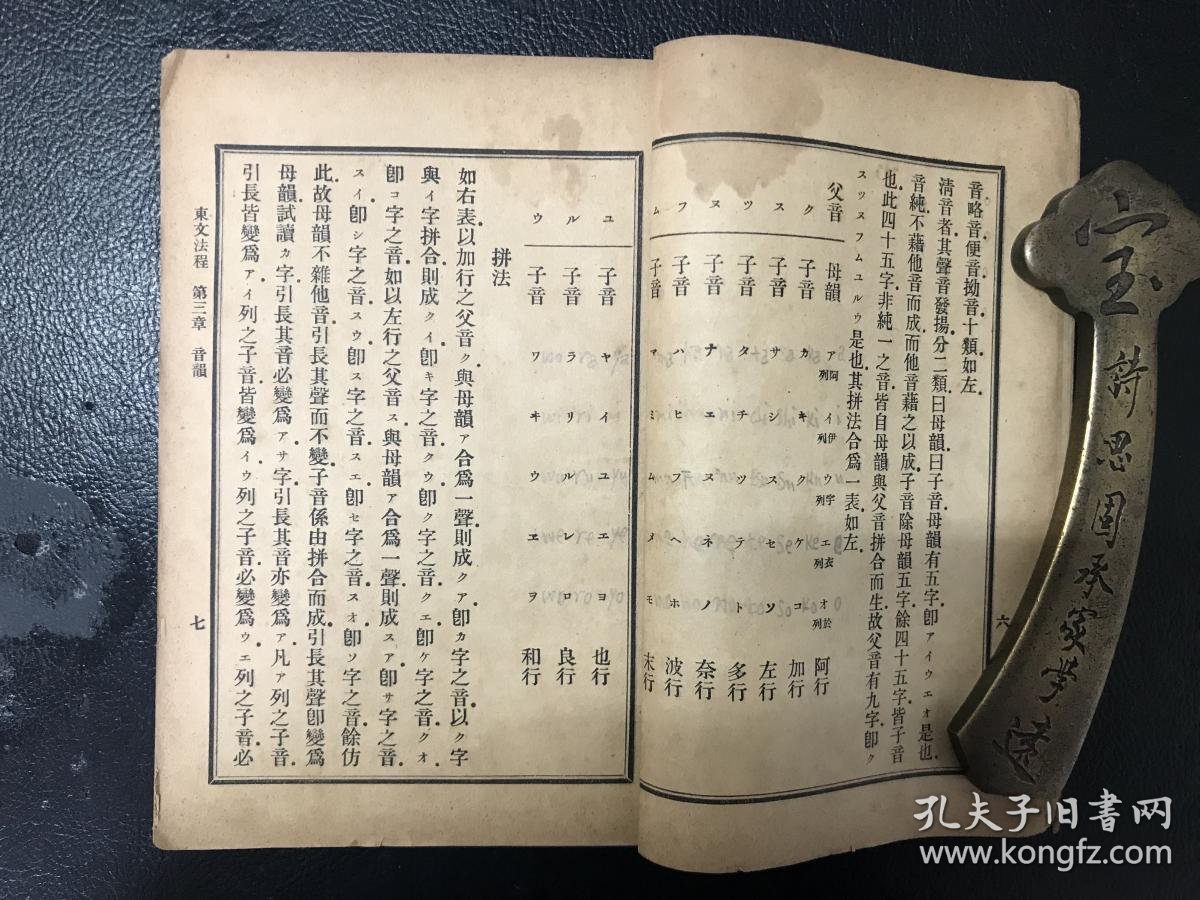 音略音便音拗音十類如左
清音者其聲音發揚分二類曰母韻曰子音母韻有五字卽アイウエオ是也
音純不藉他音而成而他音藉之以成子音除母韻五字餘四十五字皆子音
也此四十五字非純一之音皆自母韻與父音拼合而生故父音有九字卽ク
スツヌフムユルウ是也其拼法合爲一表如左
父音 母韻 ア阿列 イ伊列 ウ宇列 エ衣列 オ於列 阿行
ク 子音 カ キ ク ケ コ 加行
ス 子音 サ シ ス セ ソ 左行
ツ 子音 タ チ ツ テ ト 多行
ヌ 子音 ナ エ ヌ ネ ノ 奈行
フ 子音 ハ ヒ フ ヘ ホ 波行
ム 子音 マ ミ ム メ モ 末行
六
ユ 子音 ヤ イ ユ エ ヨ 也行
ル 子音 ラ リ ル レ ロ 良行
ウ 子音 ワ ヰ ウ ヱ ヲ 和行
拼法
如右表以加行之父音ク與母韻ア合爲一聲則成クア卽カ字之音以ク字
與イ字拼合則成クイ卽キ字之音クウ卽ク字之音クエ卽ケ字之音クオ
卽コ字之音如以左行之父音ス與母韻ア合爲一聲則成スア卽サ字之音
スイ卽シ字之音スウ卽ス字之音スエ卽セ字之音スオ卽ソ字之音餘仿
此故母韻不雜他音引長其聲而不變子音係由拼合而成引長其聲卽變爲
母韻試讀カ字引長其音必變爲アサ字引長其音亦變爲ア凡ア列之子音
引長皆變爲アイ列之子音皆變爲イウ列之子音必變爲ウエ列之子音必
東文法程 第三章 音韻
七
宝
詩思固承家学遠
孔夫子旧书网
www.kongfz.com